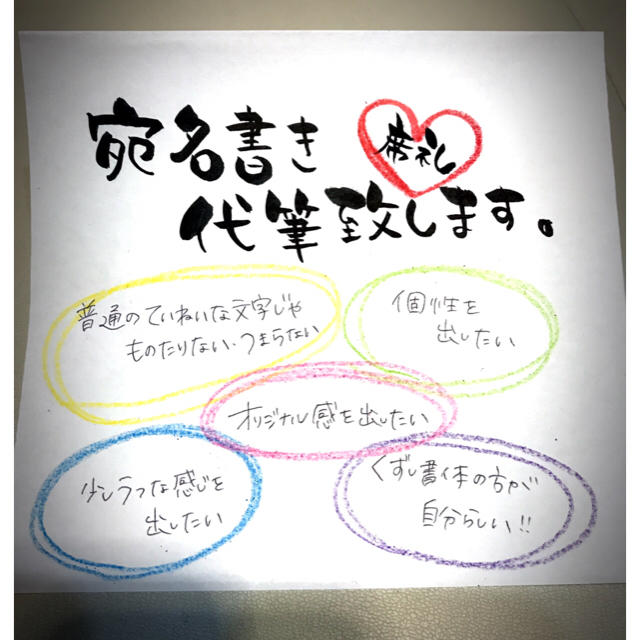 宛名書き
席札
代筆致します。
普通のていねいな文字じゃ
ものたりない・つまらない
個性を
出したい
オリジナル感を出したい
少しラフな感じを
出したい
くずし書体の方が
自分らしい!!